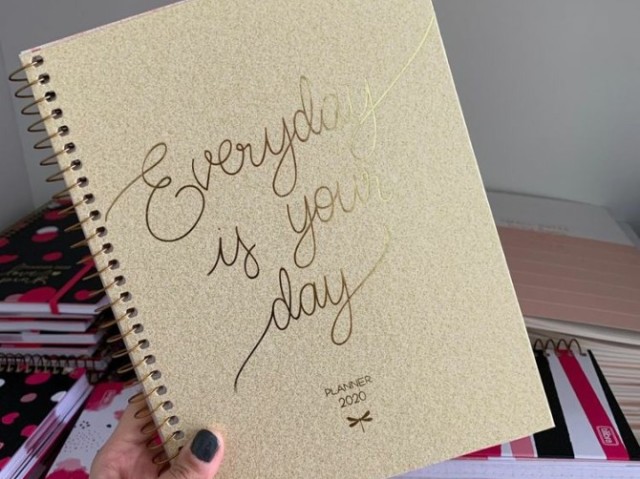 Everyday
is your
day
PLANNER
2020